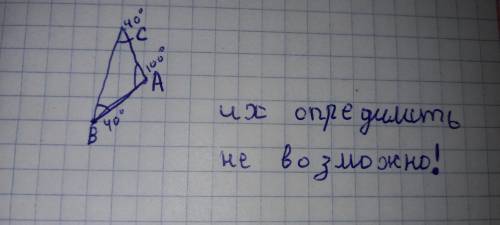 40°
C
100°
A
B
40°
их определить
не возможно!